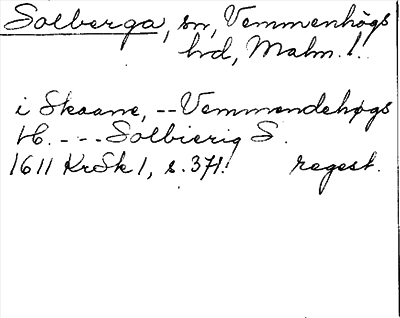 Solberga, sn, Vemmenhögs
hd, Malm. l.
i Skaane, -- Vemmendehøgs
H. - - - Solbierig S.
1611 KrSk 1, s. 371. regest.